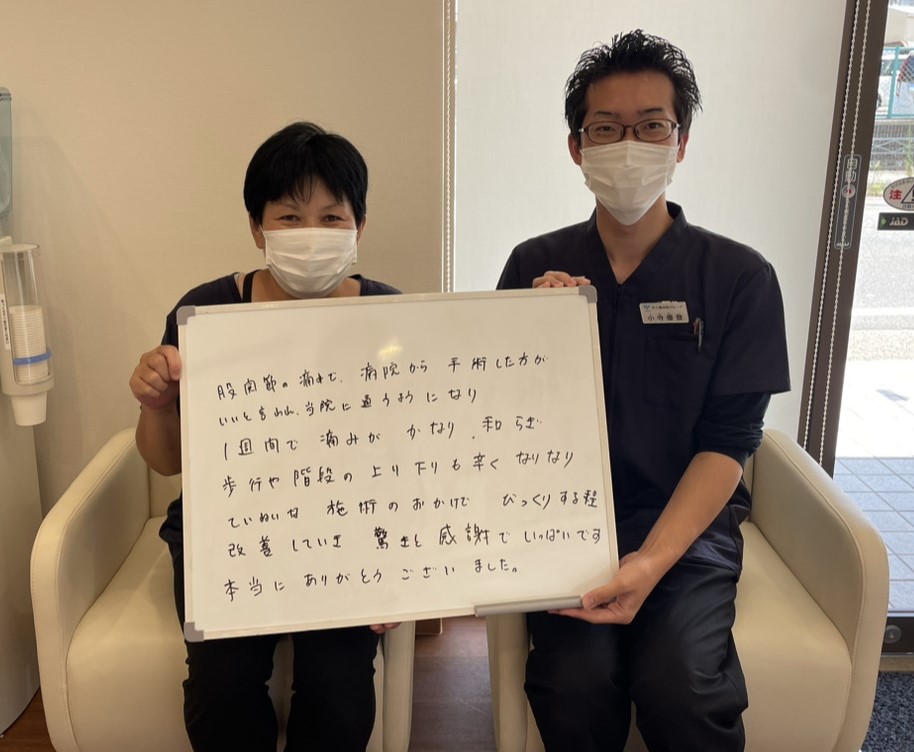 股関節の痛みで、病院から 手術した方が
いいと言われ、当院に通うようになり
1週間で 痛みが かなり、和らぎ
歩行や階段の上り下りも辛く なりなり
ていねいな 施術のおかげで びっくりする程
改善していき 驚きと感謝でいっぱいです
本当に ありがとう ございました。
小寺
注
JAD